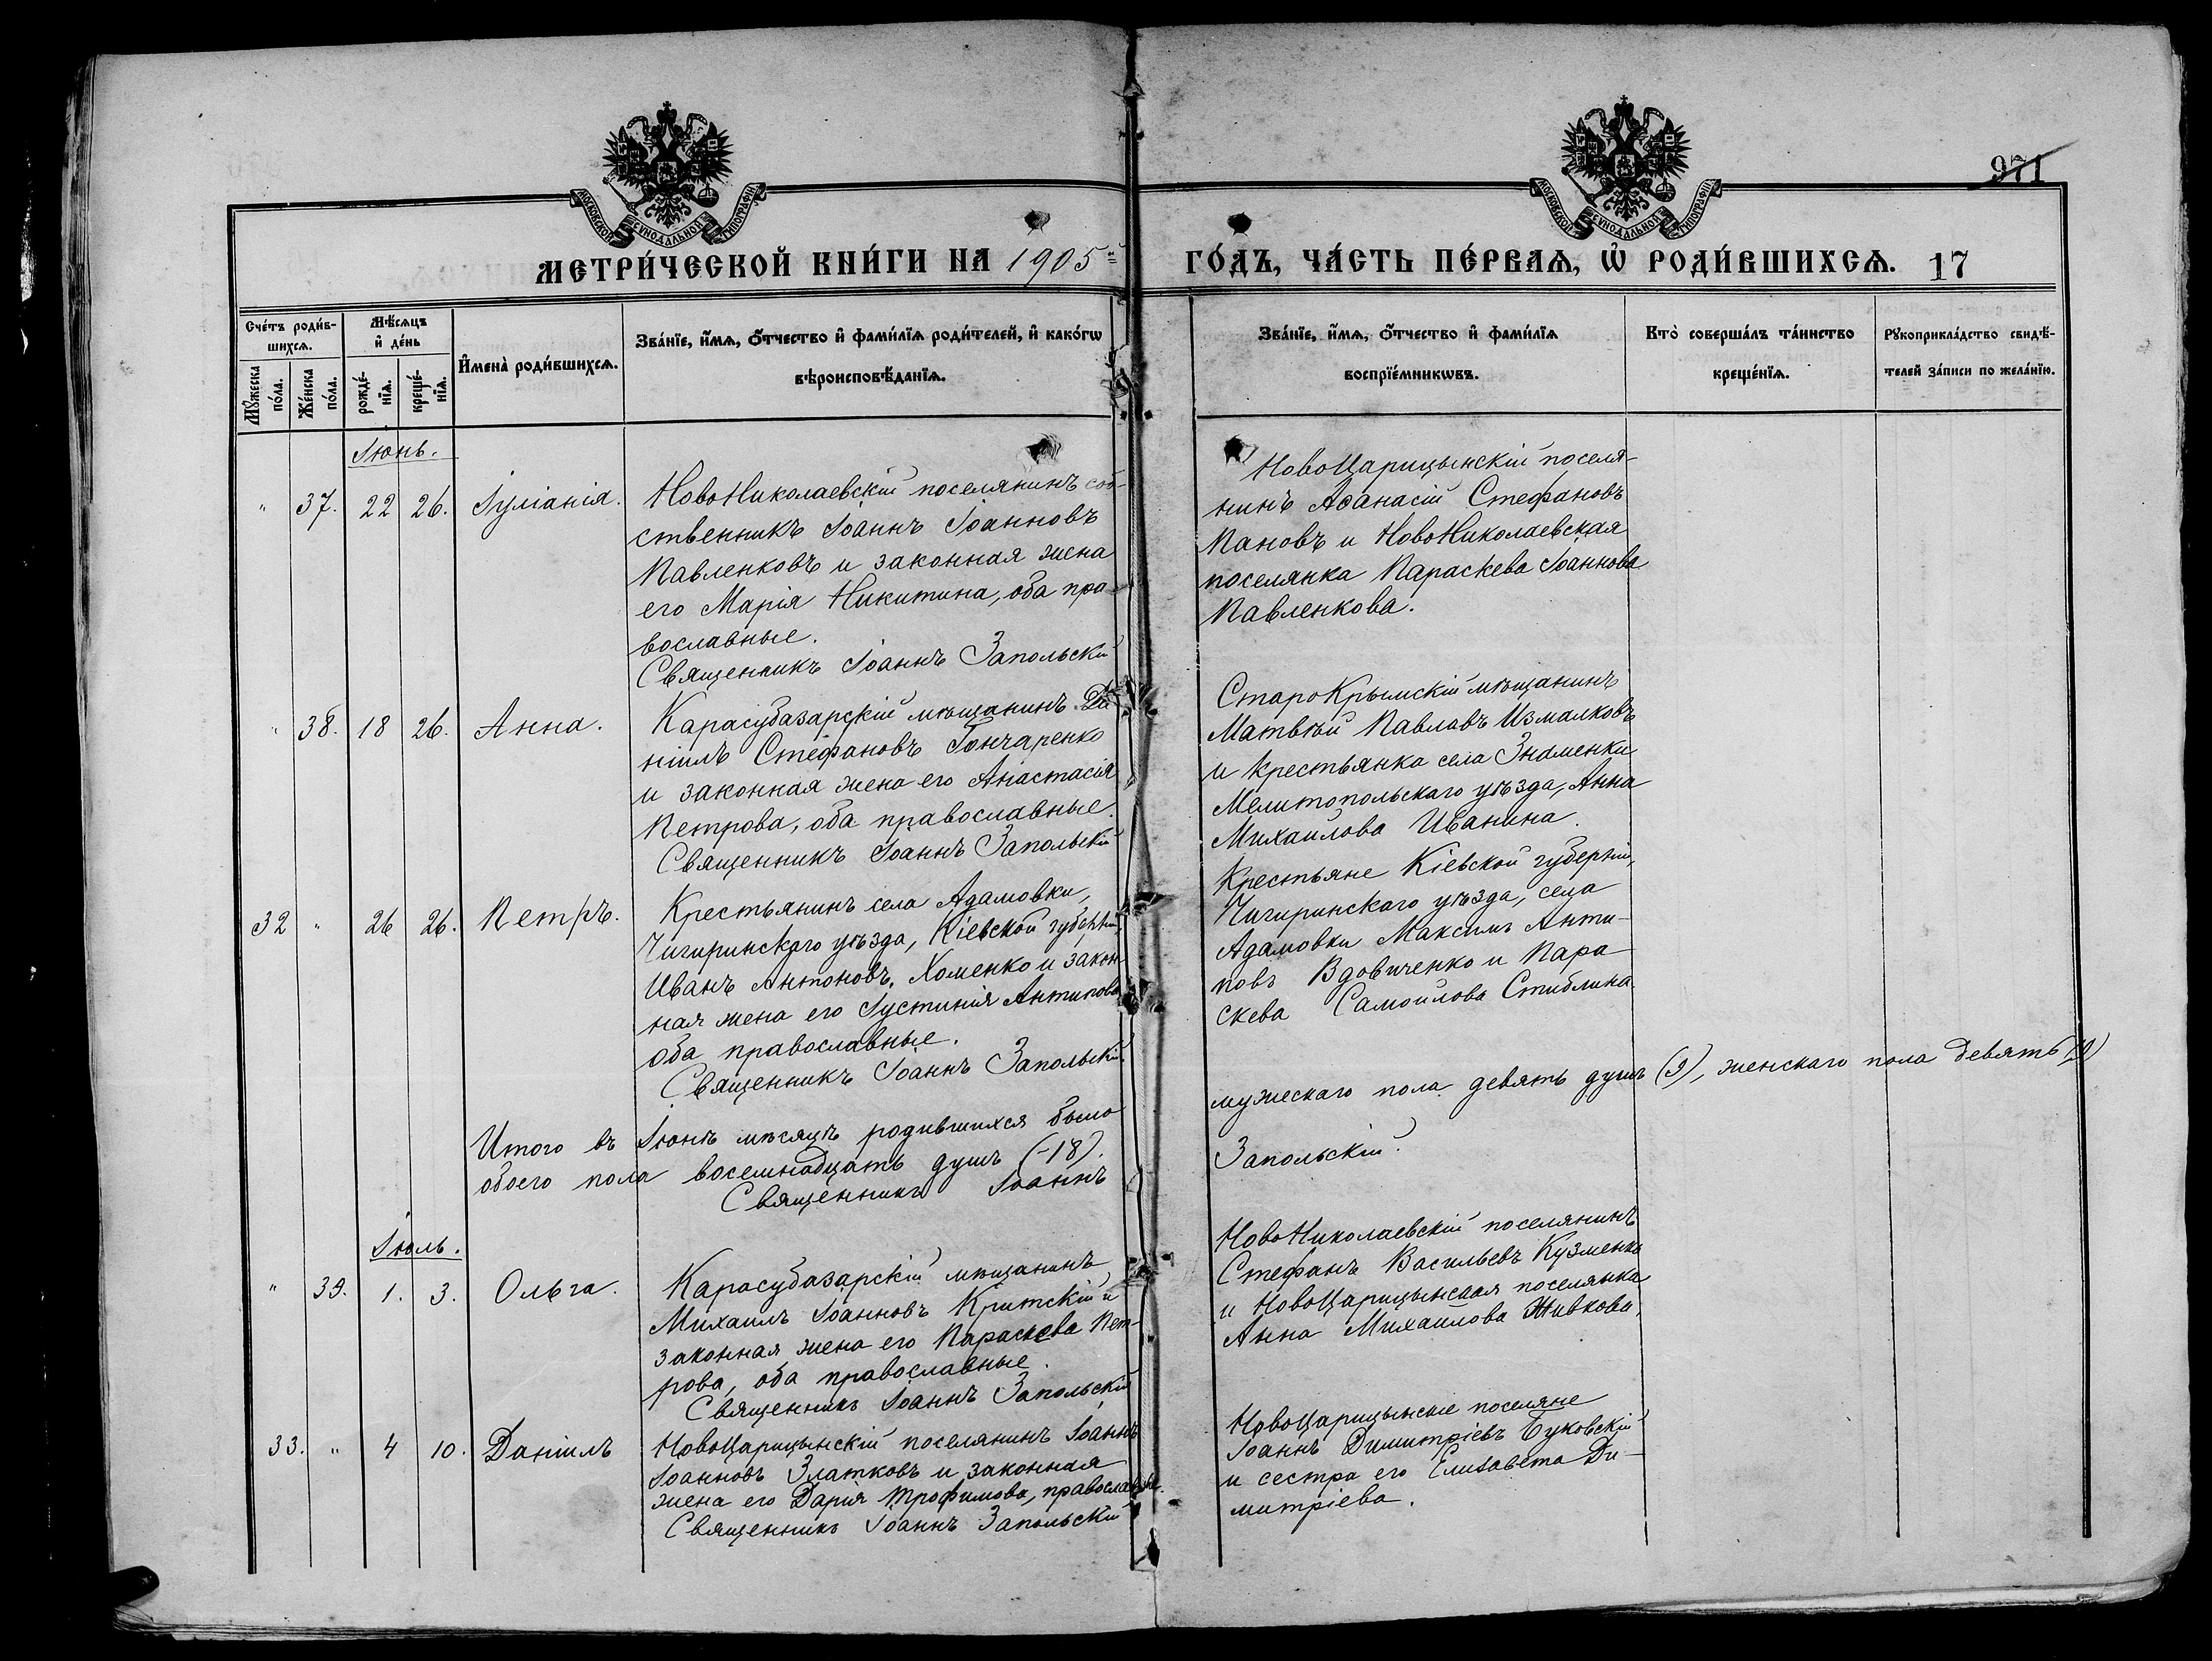 МОСКОВСКОЙ СѴНОДАЛЬНОЙ ТИПОГРАФІИ
МОСКОВСКОЙ СѴНОДАЛЬНОЙ ТИПОГРАФІИ
971
МЕТРИ́ЧЕСКОЙ КНИ́ГИ НА 1905й ГО́ДЪ, ЧА́СТЬ ПЕ́РВАѦ, Ѡ҆ РОДИ́ВШИХСѦ. 17
Сче́тъ роди́в-
шихсѧ.
Мꙋ́жеска по́ла.
Же́нска по́ла.
Мѣ́сѧцъ
и҆ де́нь
рожде́-
нїѧ.
креще́-
нїѧ.
И҆мена̀ роди́вшихсѧ.
Зва́нїе, и҆́мѧ, ѻ҆́тчество и҆ фами́лїѧ роди́телей, и҆ како́гѡ
вѣроисповѣ́данїѧ.
Зва́нїе, и҆́мѧ, ѻ҆́тчество и҆ фами́лїѧ
воспрїе́мникѡвъ.
Кто̀ соверша́лъ та́инство
креще́нїѧ.
Рꙋкоприкла́дство свидѣ́-
телей за́писи по жела́нїю.
Іюнь.
" 37. 22 26. Іуліанія.
НовоНиколаевскій поселянинъ соб-
ственникъ Іоаннъ Іоанновъ
Павленковъ и законная жена
его Марія Никитина, оба пра-
вославные.
Священникъ Іоаннъ Запольскій
НовоЦарицынскій поселя-
нинъ Аѳанасій Стефановъ
Пановъ и НовоНиколаевская
поселянка Параскева Іоаннова
Павленкова.
" 38. 18 26. Анна.
Карасубазарскій мѣщанинъ Да-
ніилъ Стефановъ Гончаренко
и законная жена его Анастасія
Петрова, оба православные.
Священникъ Іоаннъ Запольскій
СтароКрымскій мѣщанинъ
Матвѣй Павловъ Измалковъ
и крестьянка села Знаменки
Мелитопольскаго уѣзда, Анна
Михаилова Иванина.
32 " 26 26. Петръ.
Крестьянинъ села Адамовки,
Чигиринскаго уѣзда, Кіевской губерніи,
Иванъ Антоновъ Хоменко и закон-
ная жена его Іустинія Антипова
оба православные.
Священникъ Іоаннъ Запольскій
Крестьяне Кіевской губерніи,
Чигиринскаго уѣзда, села
Адамовки Максимъ Анти-
повъ Вдовиченко и Пара-
скева Самоилова Стиблина.
Итого въ Іюнѣ мѣсяцѣ родившихся было мужескаго пола девять душъ (9), женскаго пола девять (9)
обоего пола восемнадцать душъ (-18).
Священникъ Іоаннъ Запольскій.
Іюль.
" 39. 1. 3. Ольга.
Карасубазарскій мѣщанинъ
Михаилъ Іоанновъ Критскій и
законная жена его Параскева Пет-
рова, оба православные.
Священникъ Іоаннъ Запольскій
НовоНиколаевскій поселянинъ
Стефанъ Васильевъ Кузменко
и НовоЦарицынская поселянка
Анна Михаилова Живкова.
33. " 4 10. Даніилъ
НовоЦарицынскій поселянинъ Іоаннъ
Іоанновъ Златковъ и законная
жена его Дарія Трофимова, православные.
Священникъ Іоаннъ Запольскій
НовоЦарицынскіе поселяне
Іоаннъ Димитріевъ Буковскій
и сестра его Елизавета Ди-
митріева.